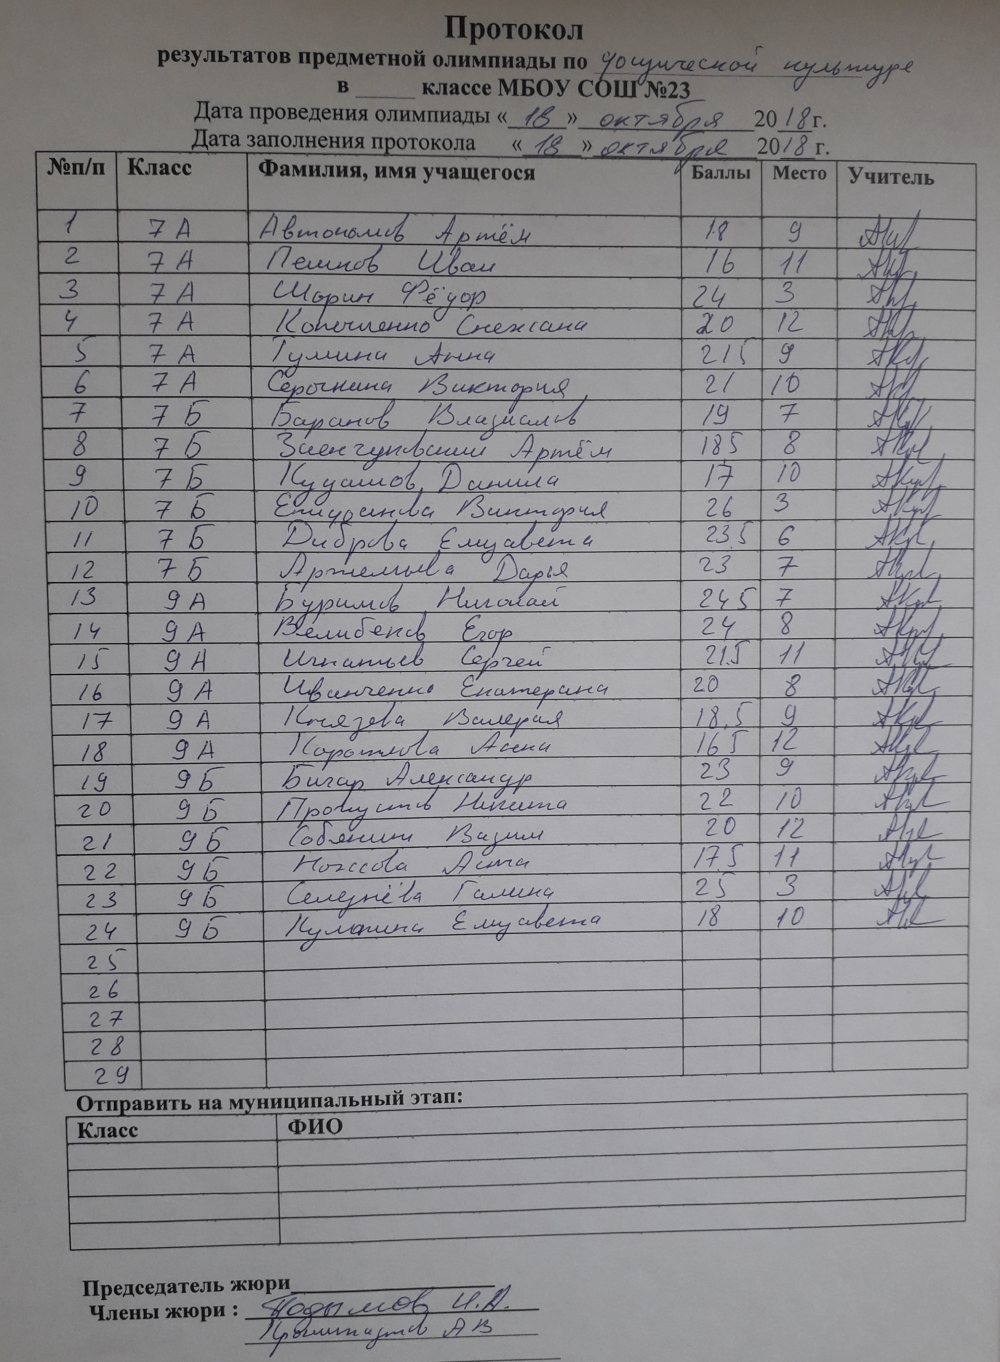 Протокол
результатов предметной олимпиады по физической культуре
в ______ классе МБОУ СОШ №23
Дата проведения олимпиады «18» октября 2018 г.
Дата заполнения протокола «18» октября 2018 г.
№п/п Класс Фамилия, имя учащегося Баллы Место Учитель
1 7 А Автономов Артём 18 9
2 7 А Иван 16 11
3 7 А Шорин Фёдор 24 3
4 7 А Снежана 20 12
5 7 А Гумина Анна 21,5 9
6 7 А Виктория 21 10
7 7 Б Баранов Владислав 19 7
8 7 Б Артём 18,5 8
9 7 Б Кудашов Данила 17 10
10 7 Б Виктория 26 3
11 7 Б Диброва Елизавета 23,5 6
12 7 Б Артемьева Дарья 23 7
13 9 А Буримов Николай 24,5 7
14 9 А Велибеков Егор 24 8
15 9 А Игнатьев Сергей 21,5 11
16 9 А Иванченко Екатерина 20 8
17 9 А Князева Валерия 18,5 9
18 9 А Анна 16,5 12
19 9 Б Бигар Александр 23 9
20 9 Б Никита 22 10
21 9 Б Собянин Вадим 20 12
22 9 Б 17,5 11
23 9 Б Селезнёва Галина 25 3
24 9 Б Кулинина Елизавета 18 10
25
26
27
28
29
Отправить на муниципальный этап:
Класс ФИО
Председатель жюри
Члены жюри : Подымов И.А.
А В